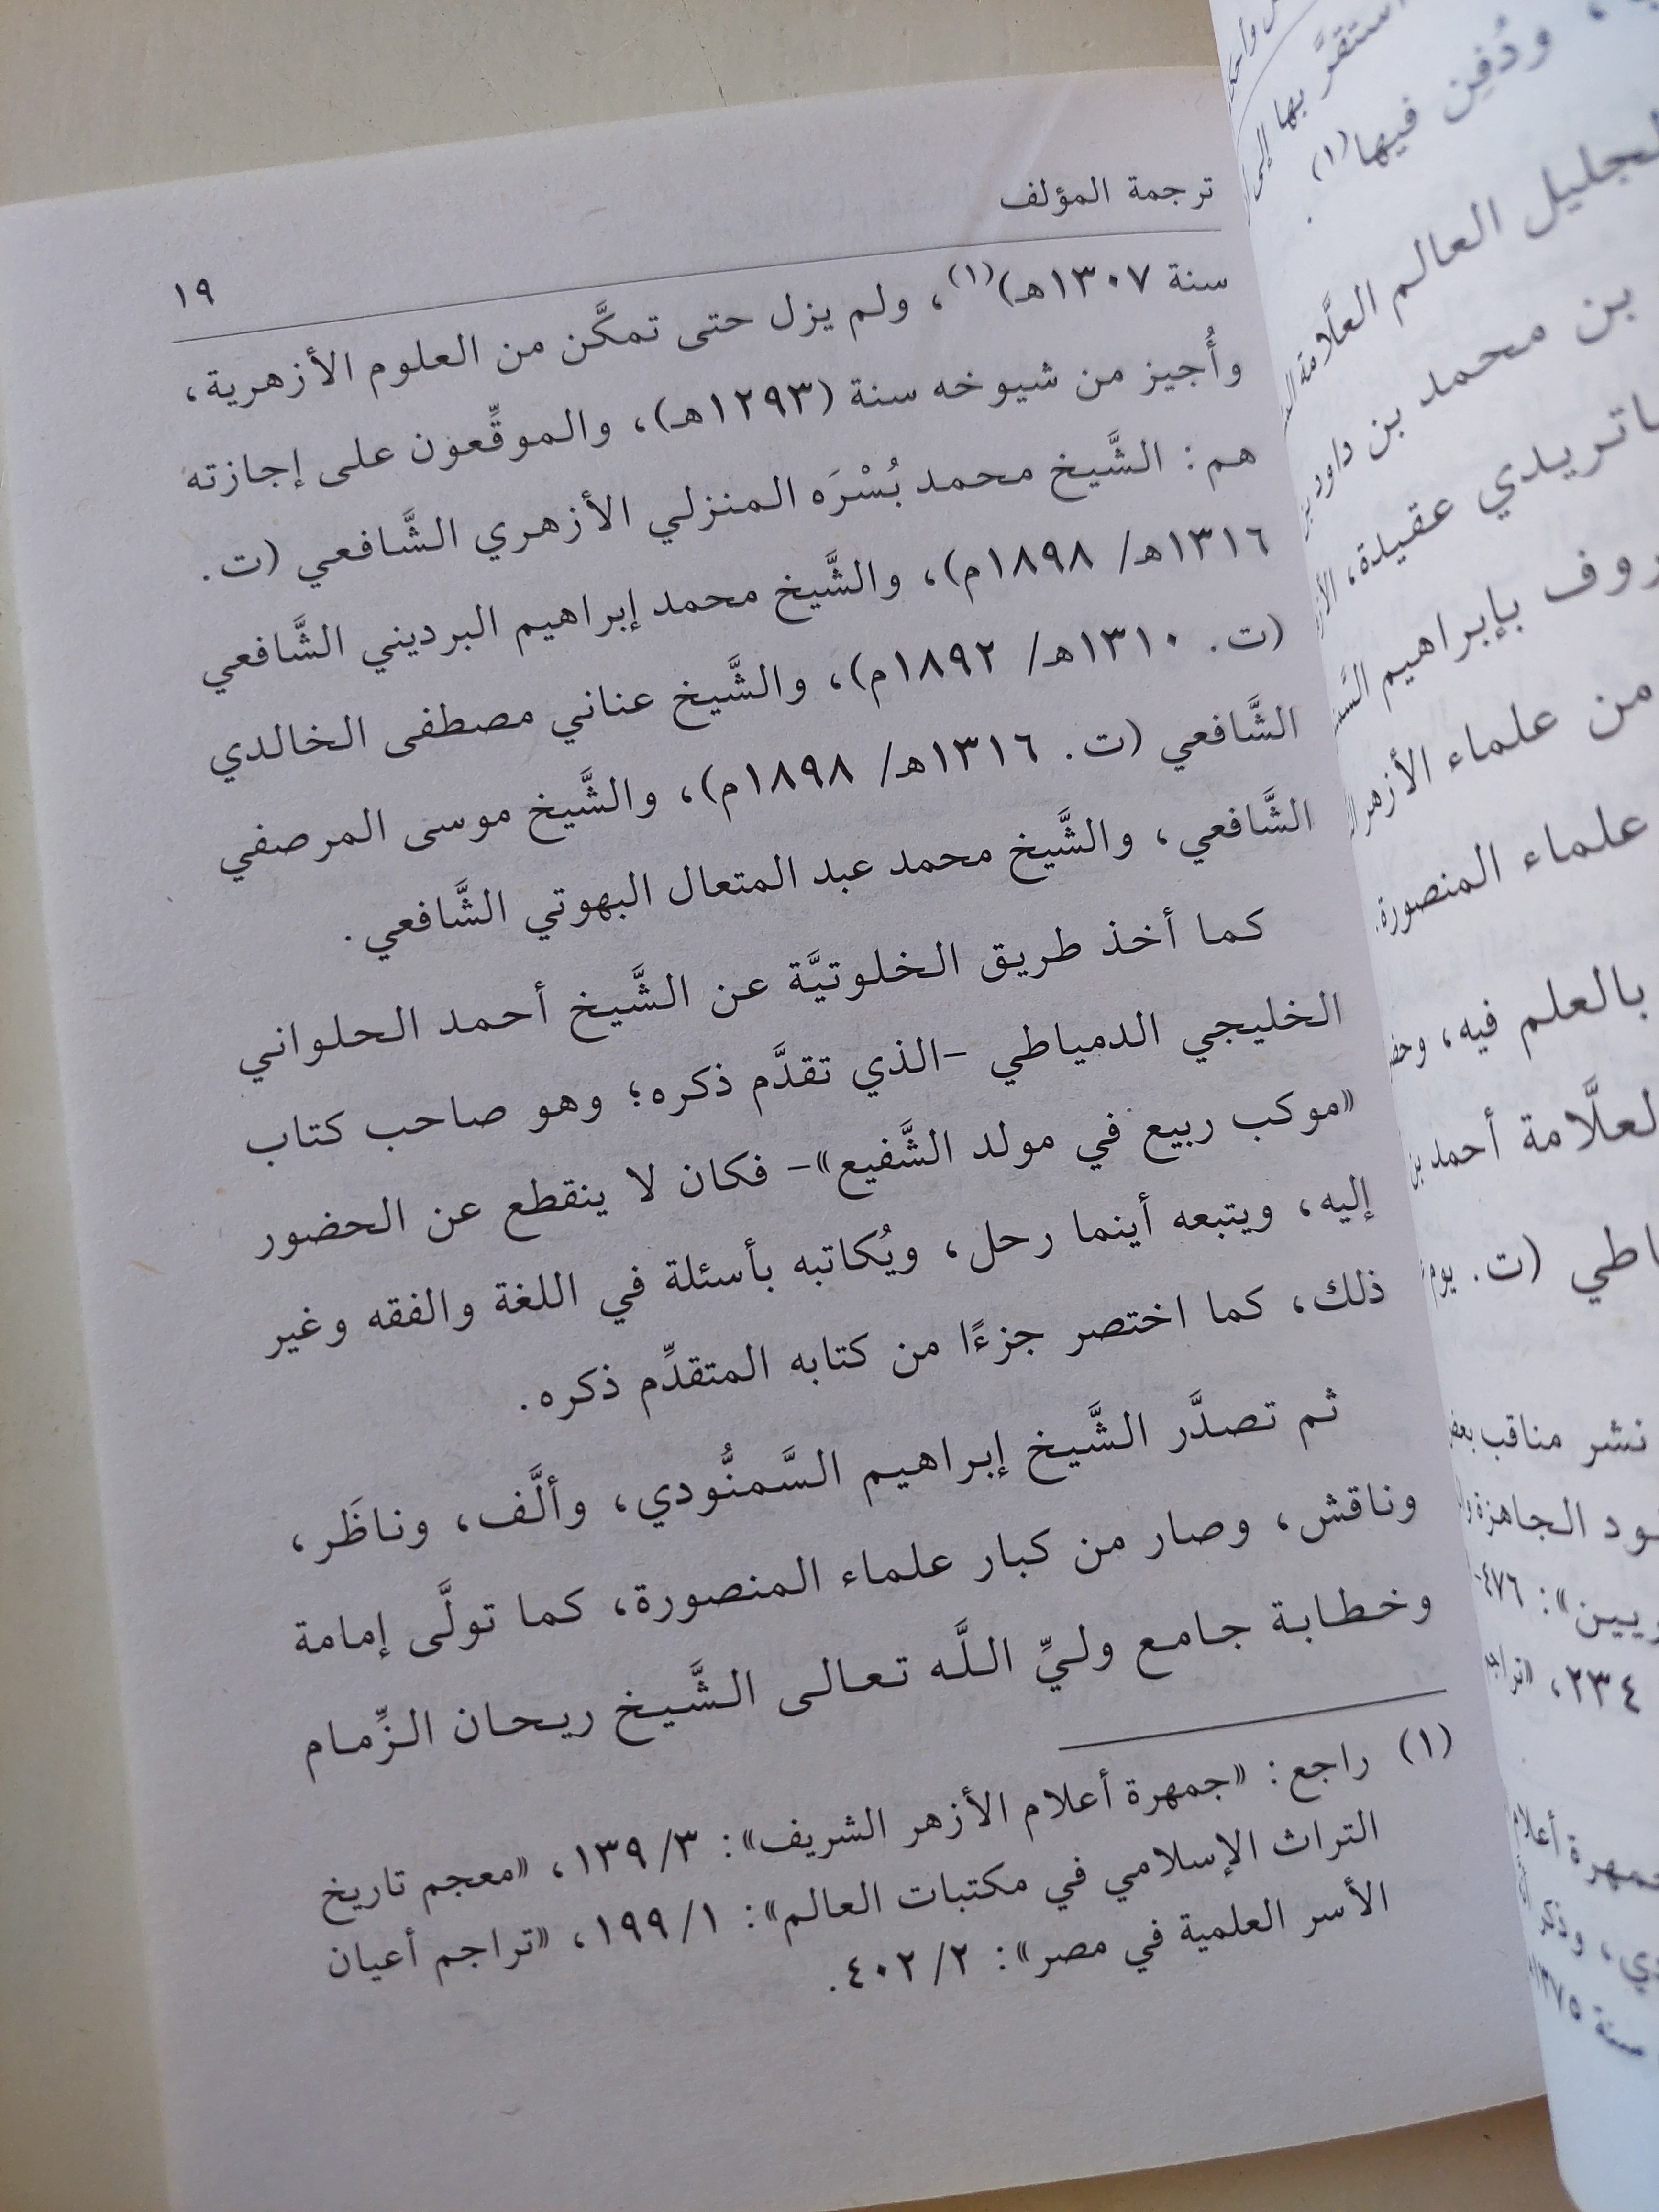 ترجمة المؤلف
١٩
سنة ١٣٠٧هـ)(١)، ولم يزل حتى تمكَّن من العلوم الأزهرية،
وأُجيز من شيوخه سنة (١٢٩٣هـ)، والموقِّعون على إجازته
هم: الشَّيخ محمد بُسْرَه المنزلي الأزهري الشَّافعي (ت.
١٣١٦هـ/ ١٨٩٨م)، والشَّيخ محمد إبراهيم البرديني الشَّافعي
(ت. ١٣١٠هـ/ ١٨٩٢م)، والشَّيخ عناني مصطفى الخالدي
الشَّافعي (ت. ١٣١٦هـ/ ١٨٩٨م)، والشَّيخ موسى المرصفي
الشَّافعي، والشَّيخ محمد عبد المتعال البهوتي الشَّافعي.
كما أخذ طريق الخلوتيَّة عن الشَّيخ أحمد الحلواني
الخليجي الدمياطي -الذي تقدَّم ذكره؛ وهو صاحب كتاب
«موكب ربيع في مولد الشَّفيع»- فكان لا ينقطع عن الحضور
إليه، ويتبعه أينما رحل، ويُكاتبه بأسئلة في اللغة والفقه وغير
ذلك، كما اختصر جزءًا من كتابه المتقدِّم ذكره.
ثم تصدَّر الشَّيخ إبراهيم السَّمنُّودي، وألَّف، وناظَر،
وناقش، وصار من كبار علماء المنصورة، كما تولَّى إمامة
وخطابة جامع وليِّ اللَّه تعالى الشَّيخ ريحان الزِّمام
(١) راجع: «جمهرة أعلام الأزهر الشريف»: ١٣٩/٣، «معجم تاريخ
التراث الإسلامي في مكتبات العالم»: ١٩٩/١، «تراجم أعيان
الأسر العلمية في مصر»: ٤٠٢/٢.
استقرَّ بها إلى
، ودُفِن فيها(١).
العالم العلَّامة
بن محمد بن داود
عقيدة،
بإبراهيم
من علماء الأزهر
علماء المنصورة
بالعلم فيه،
أحمد بن
(ت. يوم
نشر مناقب
الجاهزة
٤٧٦
٢٣٤،
سنة